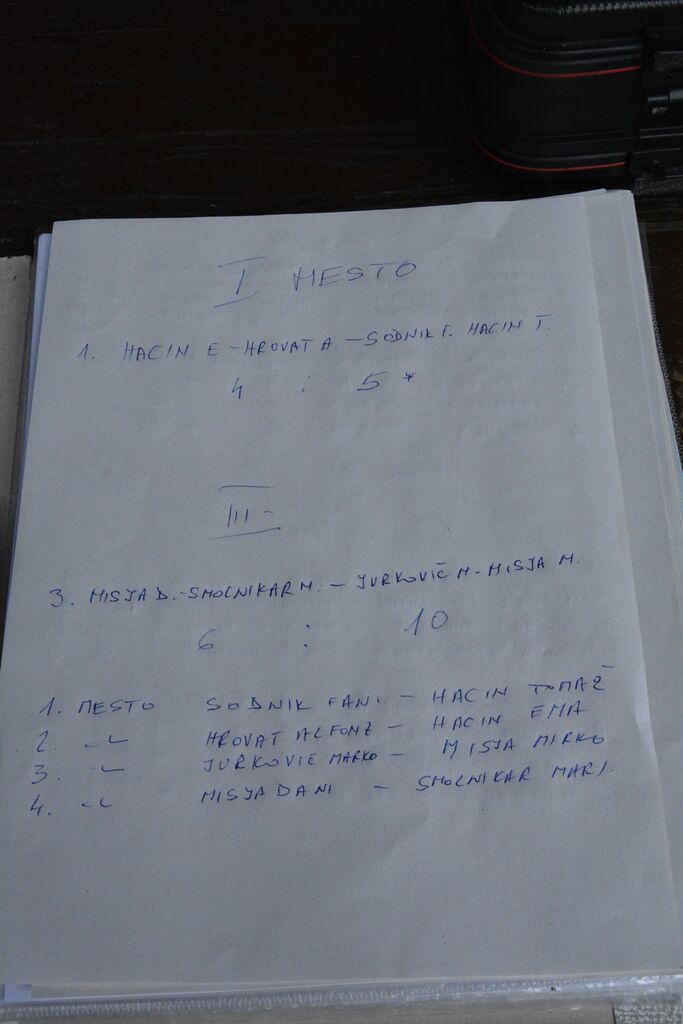 I. MESTO
1. HACIN E - HROVAT A. - SODNIK F. HACIN T.
4 : 5 *
III -
3. MISJA D. - SMOLNIKAR M. - JURKOVIČ M - MISJA M.
6 : 10
1. MESTO SODNIK FANI - HACIN TOMAŽ
2. -"- HROVAT ALFONZ - HACIN EMA
3. -"- JURKOVIČ MARKO - MISJA MIRKO
4. -"- MISJA DANI - SMOLNIKAR MARI